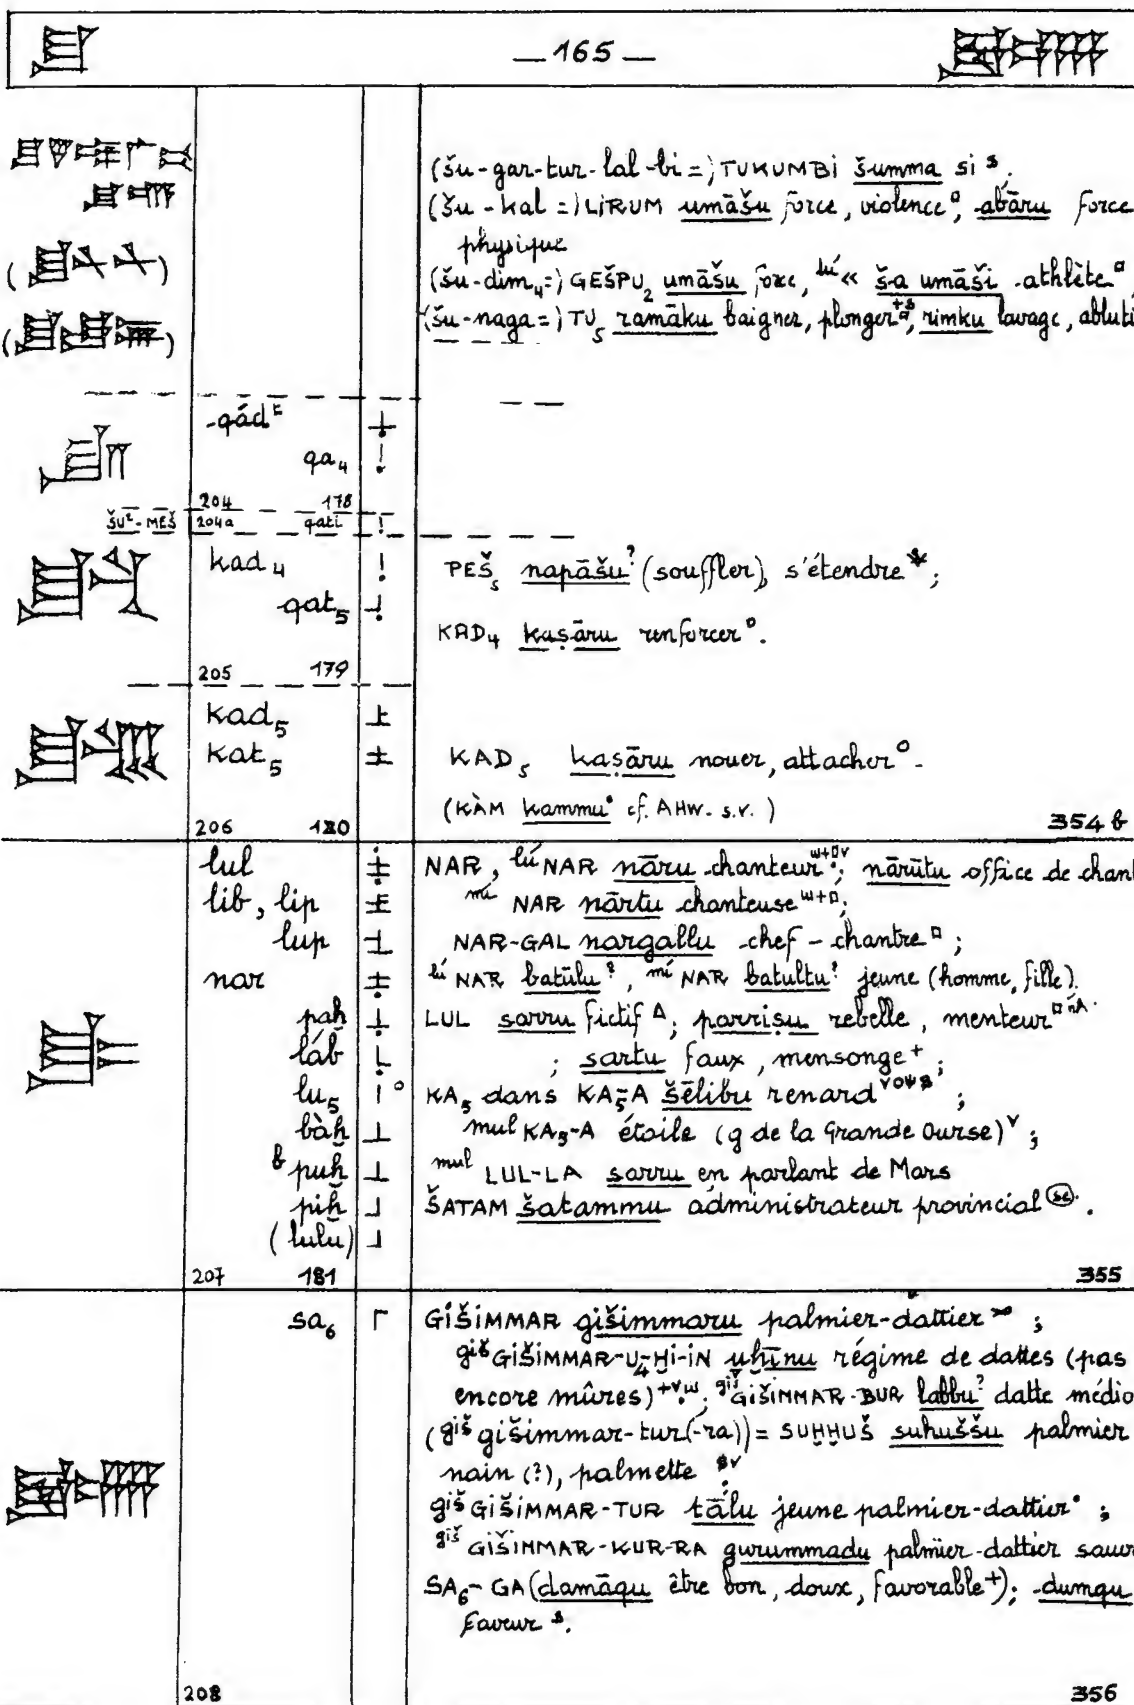 — 165 —
(šu-gar-tur-lal-bi =) TUKUMBI šumma si
(šu-kal =) LIRUM umāšu force, violence, abāru force
physique
(šu-dim₄ =) GEŠPU₂ umāšu force, lú « ša umāši athlète
(šu-naga =) TU₅ ramāku baigner, plonger, rimku lavage, abluti
qád
qa₄
204 178
ŠU²-MEŠ 204a qati
kad₄ PEŠ₅ napāšu? (souffler), s'étendre ;
qat₅
KAD₄ kaṣāru renforcer .
205 179
kad₅
kat₅ KAD₅ kaṣāru nouer, attacher .
(KÀM kammu cf. AHw. s.v.)
206 180 354 b
lul NAR, lú NAR nāru chanteur ; nārūtu office de chant
lib, lip mí NAR nārtu chanteuse ;
lup NAR-GAL nargallu chef-chantre ;
nar lú NAR batūlu?, mí NAR batultu? jeune (homme, fille).
paḫ LUL sarru fictif ; parriṣu rebelle, menteur
láb ; sartu faux, mensonge ;
lu₅ KA₅ dans KA₅-A šēlibu renard ;
bàḫ mul KA₅-A étoile (g de la Grande Ourse) ;
puḫ mul LUL-LA sarru en parlant de Mars
piḫ ŠATAM šatammu administrateur provincial .
(lulu)
207 181 355
sa₆ GIŠIMMAR gišimmaru palmier-dattier ;
giš GIŠIMMAR-U₄-ḪI-IN uḫīnu régime de dattes (pas
encore mûres) ; giš GIŠIMMAR-BUR labbu? datte médio
(giš gišimmar-tur(-ra)) = SUḪḪUŠ suḫuššu palmier
nain (?), palmette
giš GIŠIMMAR-TUR tālu jeune palmier-dattier ;
giš GIŠIMMAR-KUR-RA gurummadu palmier-dattier sauv
SA₆-GA (damāqu être bon, doux, favorable); dumqu
faveur .
208 356